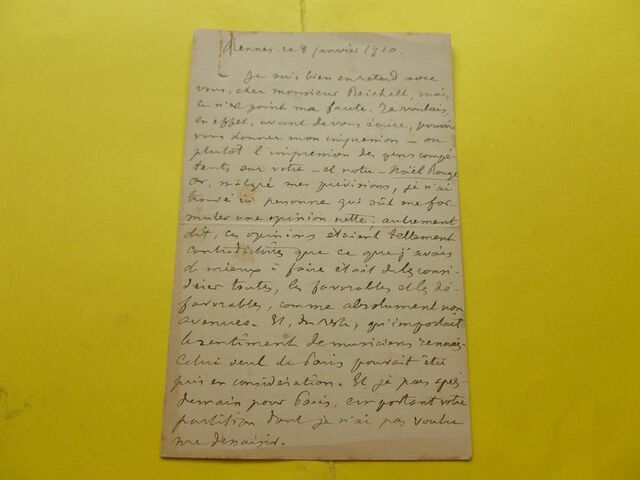 Rennes, ce 8 janvier 1910.
Je suis bien en retard avec
vous, cher monsieur Reichelt, mais
ce n'est point ma faute. Je voulais,
en effet, avant de vous écrire, pouvoir
vous donner mon impression – ou
plutôt l'impression des gens compé-
tents sur votre – et notre – Noël Rouge
Or, malgré mes prévisions, je n'ai
trouvé ici personne qui sût me for
muler une opinion nette; autrement
dit, ces opinions étaient tellement
contradictoires que ce que j'avais
de mieux à faire était de les consi-
dérer toutes, les favorables et les dé-
favorables, comme absolument non
avenues. Et, du reste, qu'importait
le sentiment de musiciens rennais.
Celui seul de Paris pouvait être
pris en considération. Et je pars après
demain pour Paris, emportant votre
partition dont je n'ai pas voulu
me dessaisir.